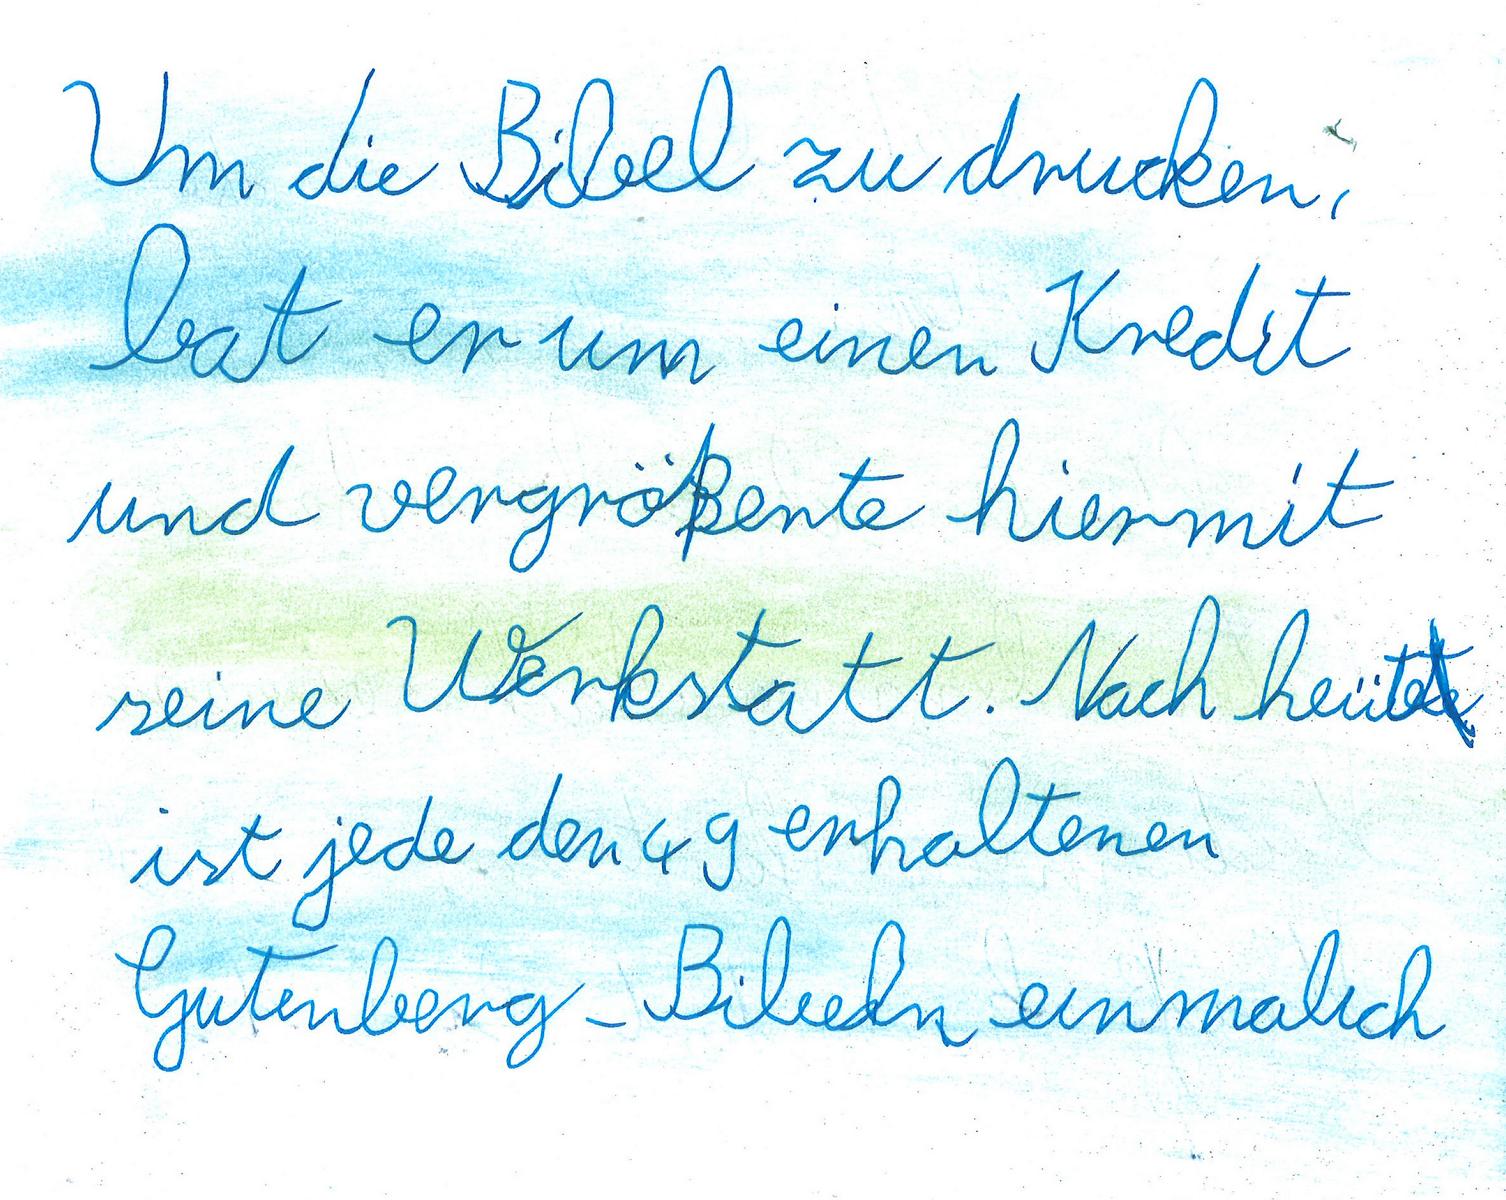 Um die Bibel zu drucken,
bat er um einen Kredit
und vergrößerte hiermit
seine Werkstatt. Nach heute
ist jede der 49 erhaltenen
Gutenberg-Bibeln einmalich